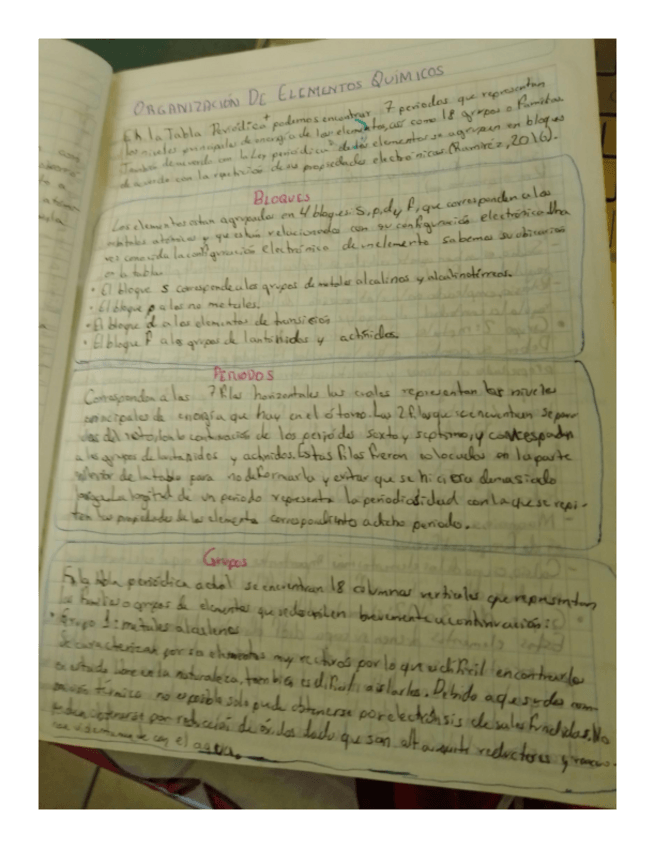 ORGANIZACIÓN DE ELEMENTOS QUÍMICOS
En la Tabla Periódica podemos encontrar 7 periodos que representan
los niveles principales de energía de los elementos, así como 18 grupos o Familias
de acuerdo con la ley periódica los elementos se agrupan en bloques
de acuerdo con la repetición de sus propiedades electrónicas. (Ramírez, 2016).
BLOQUES
Los elementos están agrupados en 4 bloques s, p, d y f, que corresponden a los
orbitales atómicos y que están relacionados con su configuración electrónica. Una
vez conocida la configuración electrónica de un elemento sabemos su ubicación
en la tabla.
• El bloque s corresponde a los grupos de metales alcalinos y alcalinotérreos.
• El bloque p a los no metales.
• El bloque d a los elementos de transición
• El bloque f a los grupos de lantánidos y actínidos.
PERIODOS
Corresponden a las 7 filas horizontales las cuales representan los niveles
principales de energía que hay en el átomo. Las 2 filas que se encuentran separa-
das del resto son la continuación de los periodos sexto y septimo, y corresponden
a los grupos de lantanidos y actinidos. Estas filas fueron colocadas en la parte
inferior de la tabla para no deformarla y evitar que se hiciera demasiado
larga. La longitud de un periodo representa la periodicidad con la que se repi-
ten las propiedades de los elementos correspondientes a dicho periodo.
Grupos
En la tabla periódica actual se encuentran 18 columnas verticales que representan
las familias o grupos de elementos que se describen brevemente a continuación:
• Grupo 1: metales alcalinos
Se caracterizan por ser elementos muy reactivos por lo que es dificil encontrarlos
en estado libre en la naturaleza, también es dificil aislarlos. Debido a que su
térmica no es posible solo puede obtenerse por electrólisis de sales fundidas. No
pueden obtenerse por reducción de óxidos dado que son altamente reductores y
con el agua.